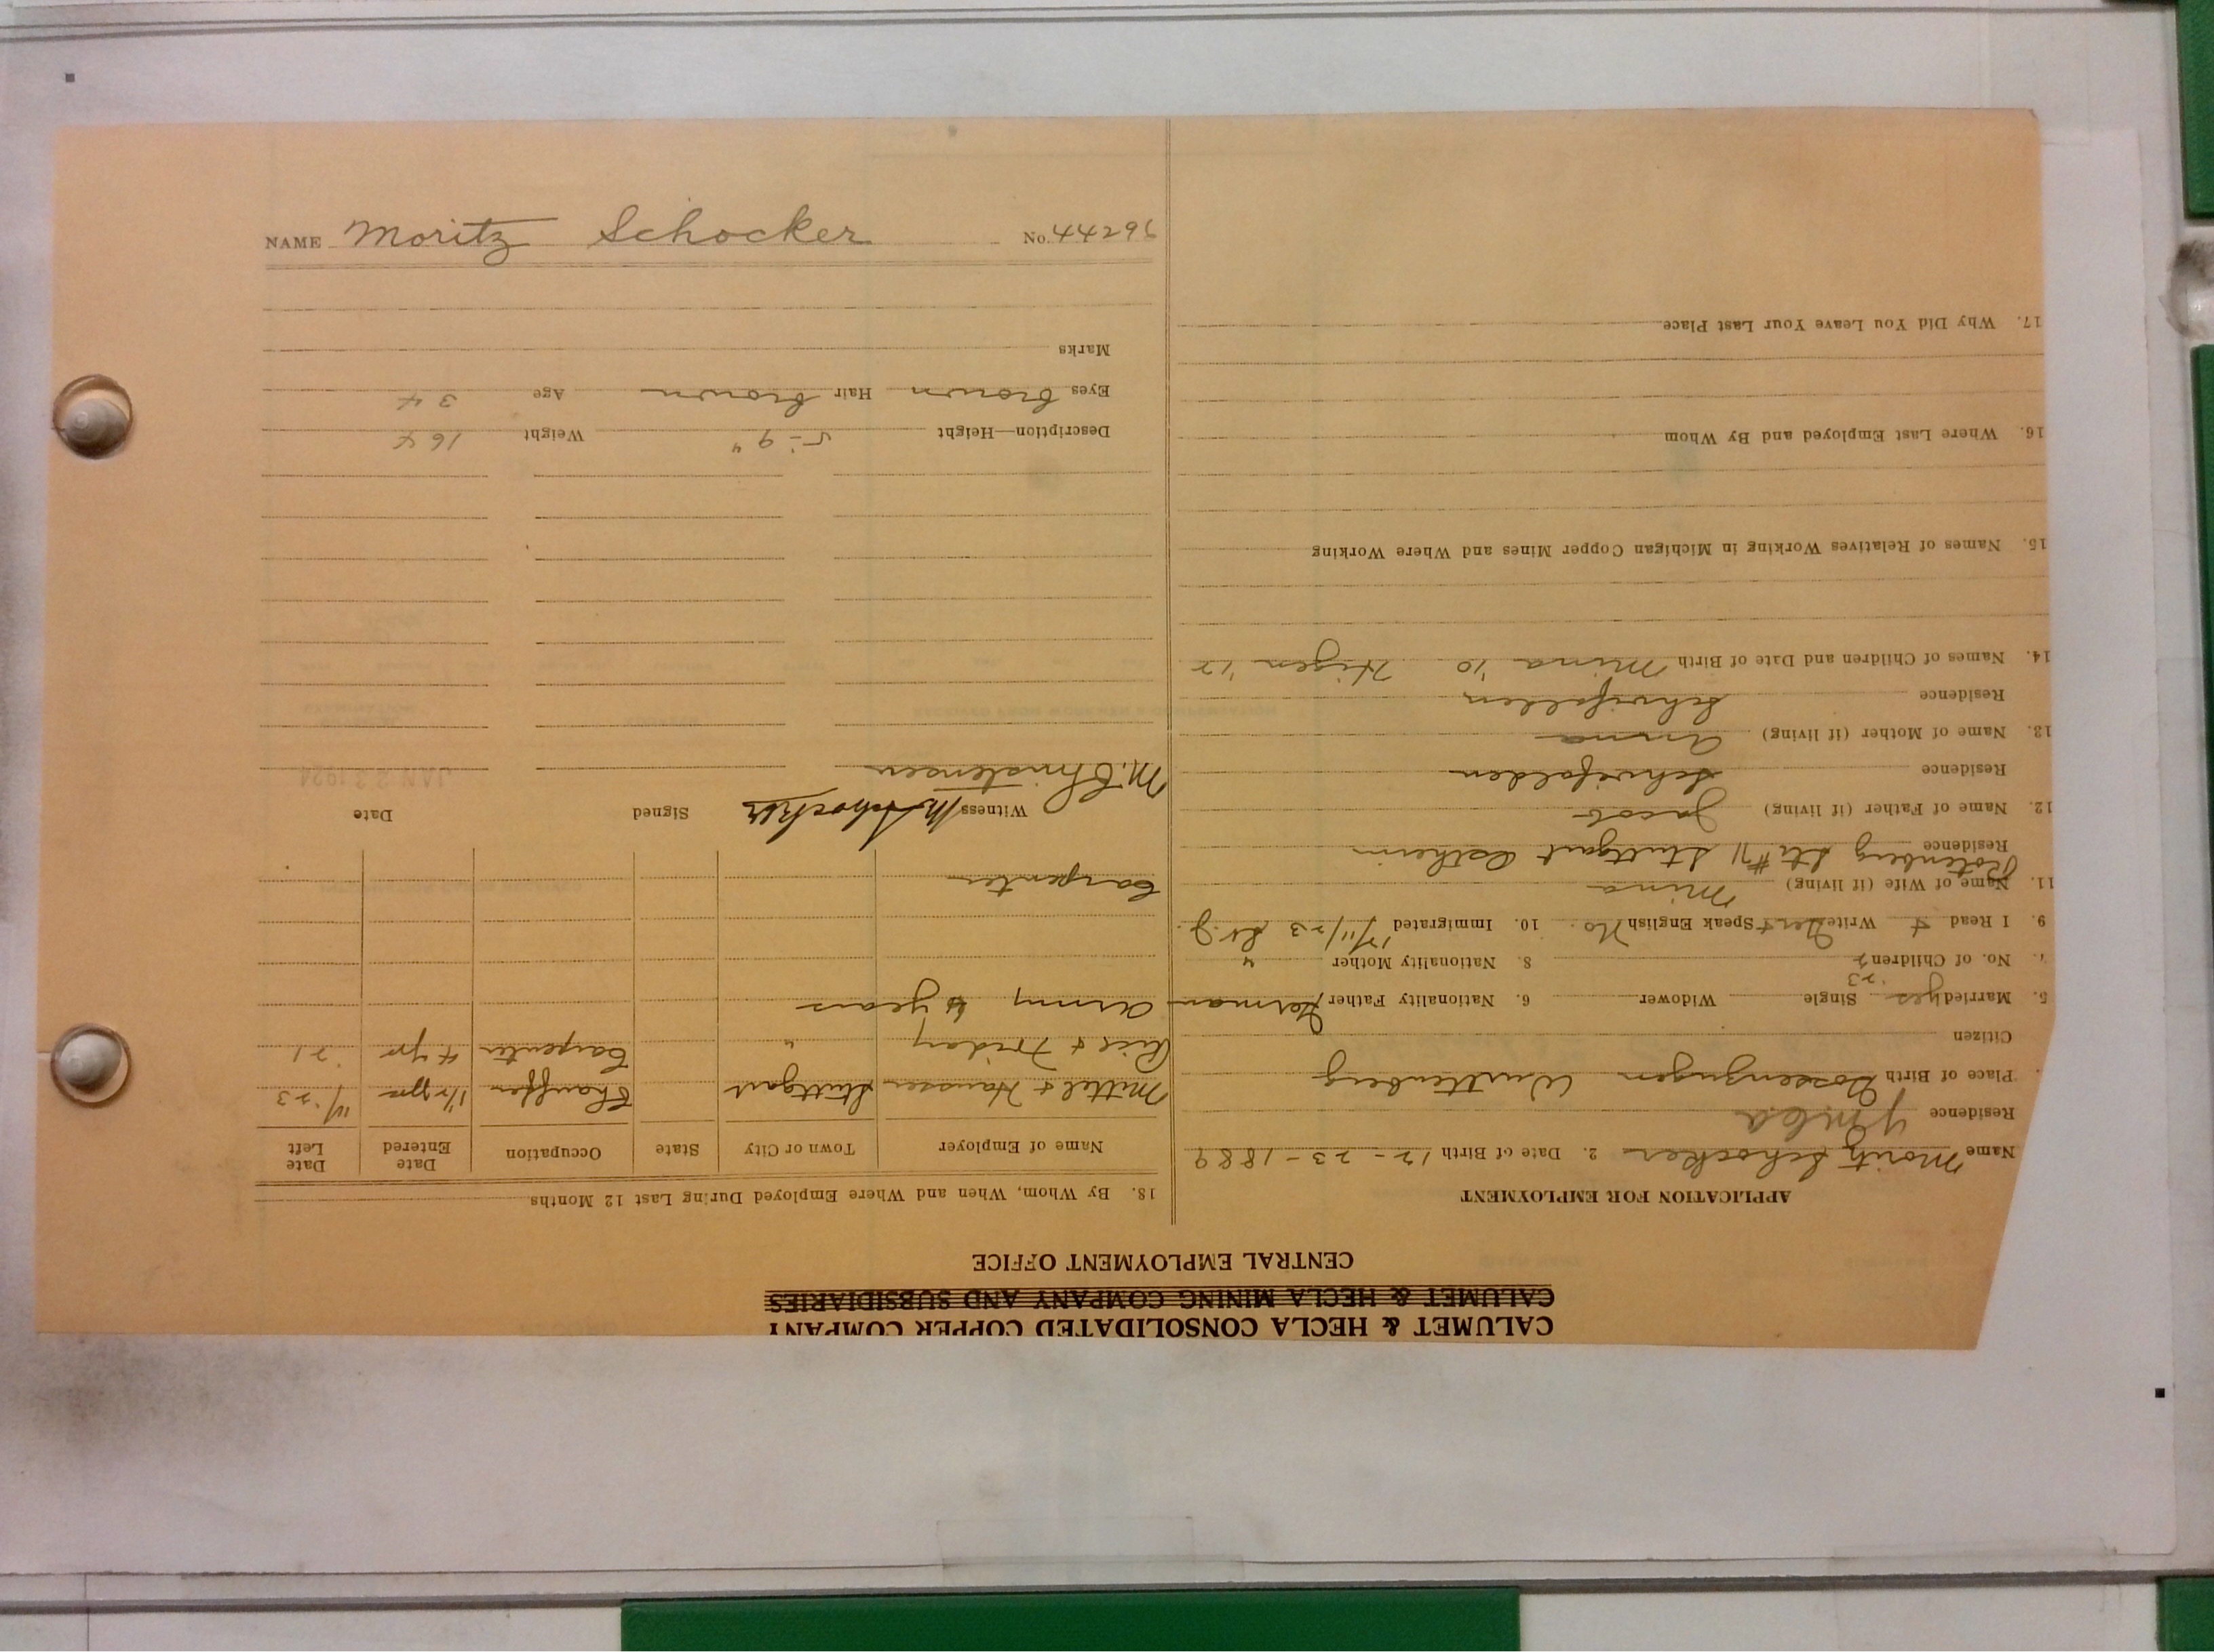 NAME Moritz Schocker No. 44295
CALUMET & HECLA CONSOLIDATED COPPER COMPANY
CALUMET & HECLA MINING COMPANY AND SUBSIDIARIES
CENTRAL EMPLOYMENT OFFICE
APPLICATION FOR EMPLOYMENT
Name Moritz Schocker 2. Date of Birth 12-23-1889
Residence Y.M.C.A
Place of Birth Wurttenberg
Citizen
5. Married yes '23 Single Widower 6. Nationality Father German
7. No. of Children 2 8. Nationality Mother "
9. I Read + Write Ger + Speak English No. 10. Immigrated
11. Name of Wife (if living) Mina
Residence Rotenberg Str #71 Stuttgart Ostheim
12. Name of Father (if living) Jacob
Residence
13. Name of Mother (if living) Anna
Residence
14. Names of Children and Date of Birth Mina '10 '12
15. Names of Relatives Working in Michigan Copper Mines and Where Working
16. Where Last Employed and By Whom
17. Why Did You Leave Your Last Place
18. By Whom, When and Where Employed During Last 12 Months
Name of Employer Town or City State Occupation Date Entered Date Left
Mittel + Hausser Stuttgart Chauffer 1 1/2 yrs 11/'23
+ Friday " Carpenter 4 yrs '21
Army 6 years
Carpenter
Witness M Schocker Signed Date
M. Christensen JAN 23 1924
Description—Height 5-9" Weight 164
Eyes brown Hair brown Age 34
Marks